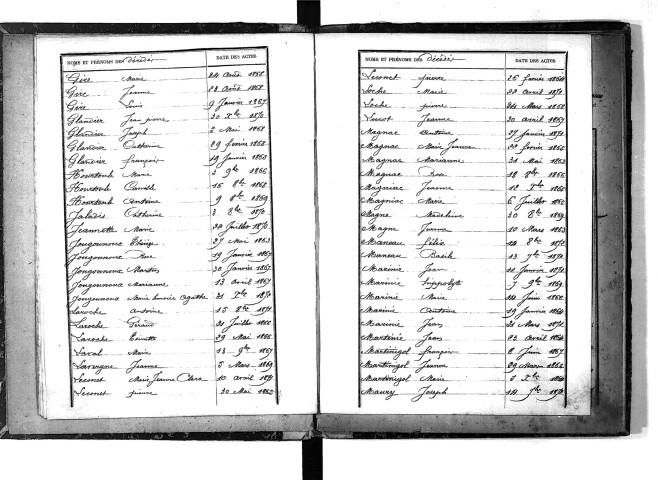 NOMS ET PRÉNOMS DES décédés DATE DES ACTES
Give Marie 24 Août 1868
Give Jeanne 22 Août 1868
Give Louis 9 Janvier 1867
Glandier Jean pierre 30 Xbre 1870
Glandier Joseph 2 Mai 1868
Glandier Catherine 29 février 1868
Glandier françois 19 Janvier 1868
Hourtoule Marie 3 9bre 1866
Hourtoule Camille 16 8bre 1868
Hourtoule Antoine 9 8bre 1869
Jaladis Catherine 3 8bre 1870
Jeannette Marie 30 Juillet 1870
Jougounoux 27 Mai 1863
Jougounoux Rose 19 Janvier 1867
Jougounoux Martin 30 Janvier 1867
Jougounoux Marianne 13 avril 1867
Jougounoux Marie Agathe 21 Xbre 1870
Laroche Antoine 15 8bre 1871
Laroche Géraud 21 Juillet 1866
Laroche Toinette 29 Mai 1866
Laval Marie 13 9bre 1867
Lavergne Jeanne 5 Mars 1869
Leconet Marie Jeanne Clara 10 avril 1871
Leconet pierre 30 Mai
NOMS ET PRÉNOMS DES décédés DATE DES ACTES
Leconet pierre 26 février 1864
Loche Marie 22 avril 1871
Loche pierre 24 Mars 1868
Lucot Jeanne 30 avril 1867
Magnac Antoine 27 Janvier 1871
Magnac Marie Jeanne février 1866
Magnac Marianne 31 Mai 1863
Magnac Rose 18 8bre 1866
Magniac Jeanne 12 Xbre 1866
Magniac Marie 6 Juillet
Magne Madeleine 30 8bre 1869
Magne Jeanne 10 Mars 1863
Maneau Félix 14 8bre 1871
Maneau Basile 13 7bre 1871
Marinie Jean 11 Janvier 1871
Marinie hyppolyte 7 9bre 1869
Marinie Marie 14 Juin 1868
Marinie Antoine 19 Janvier 1864
Marinie Jean 21 Mars 1871
Martinie Jean 23 avril 1864
Martinigol françois 8 Juin 1867
Martinigol Jeanne 29
Martinigol Marie Xbre
Maury Joseph 14 7bre